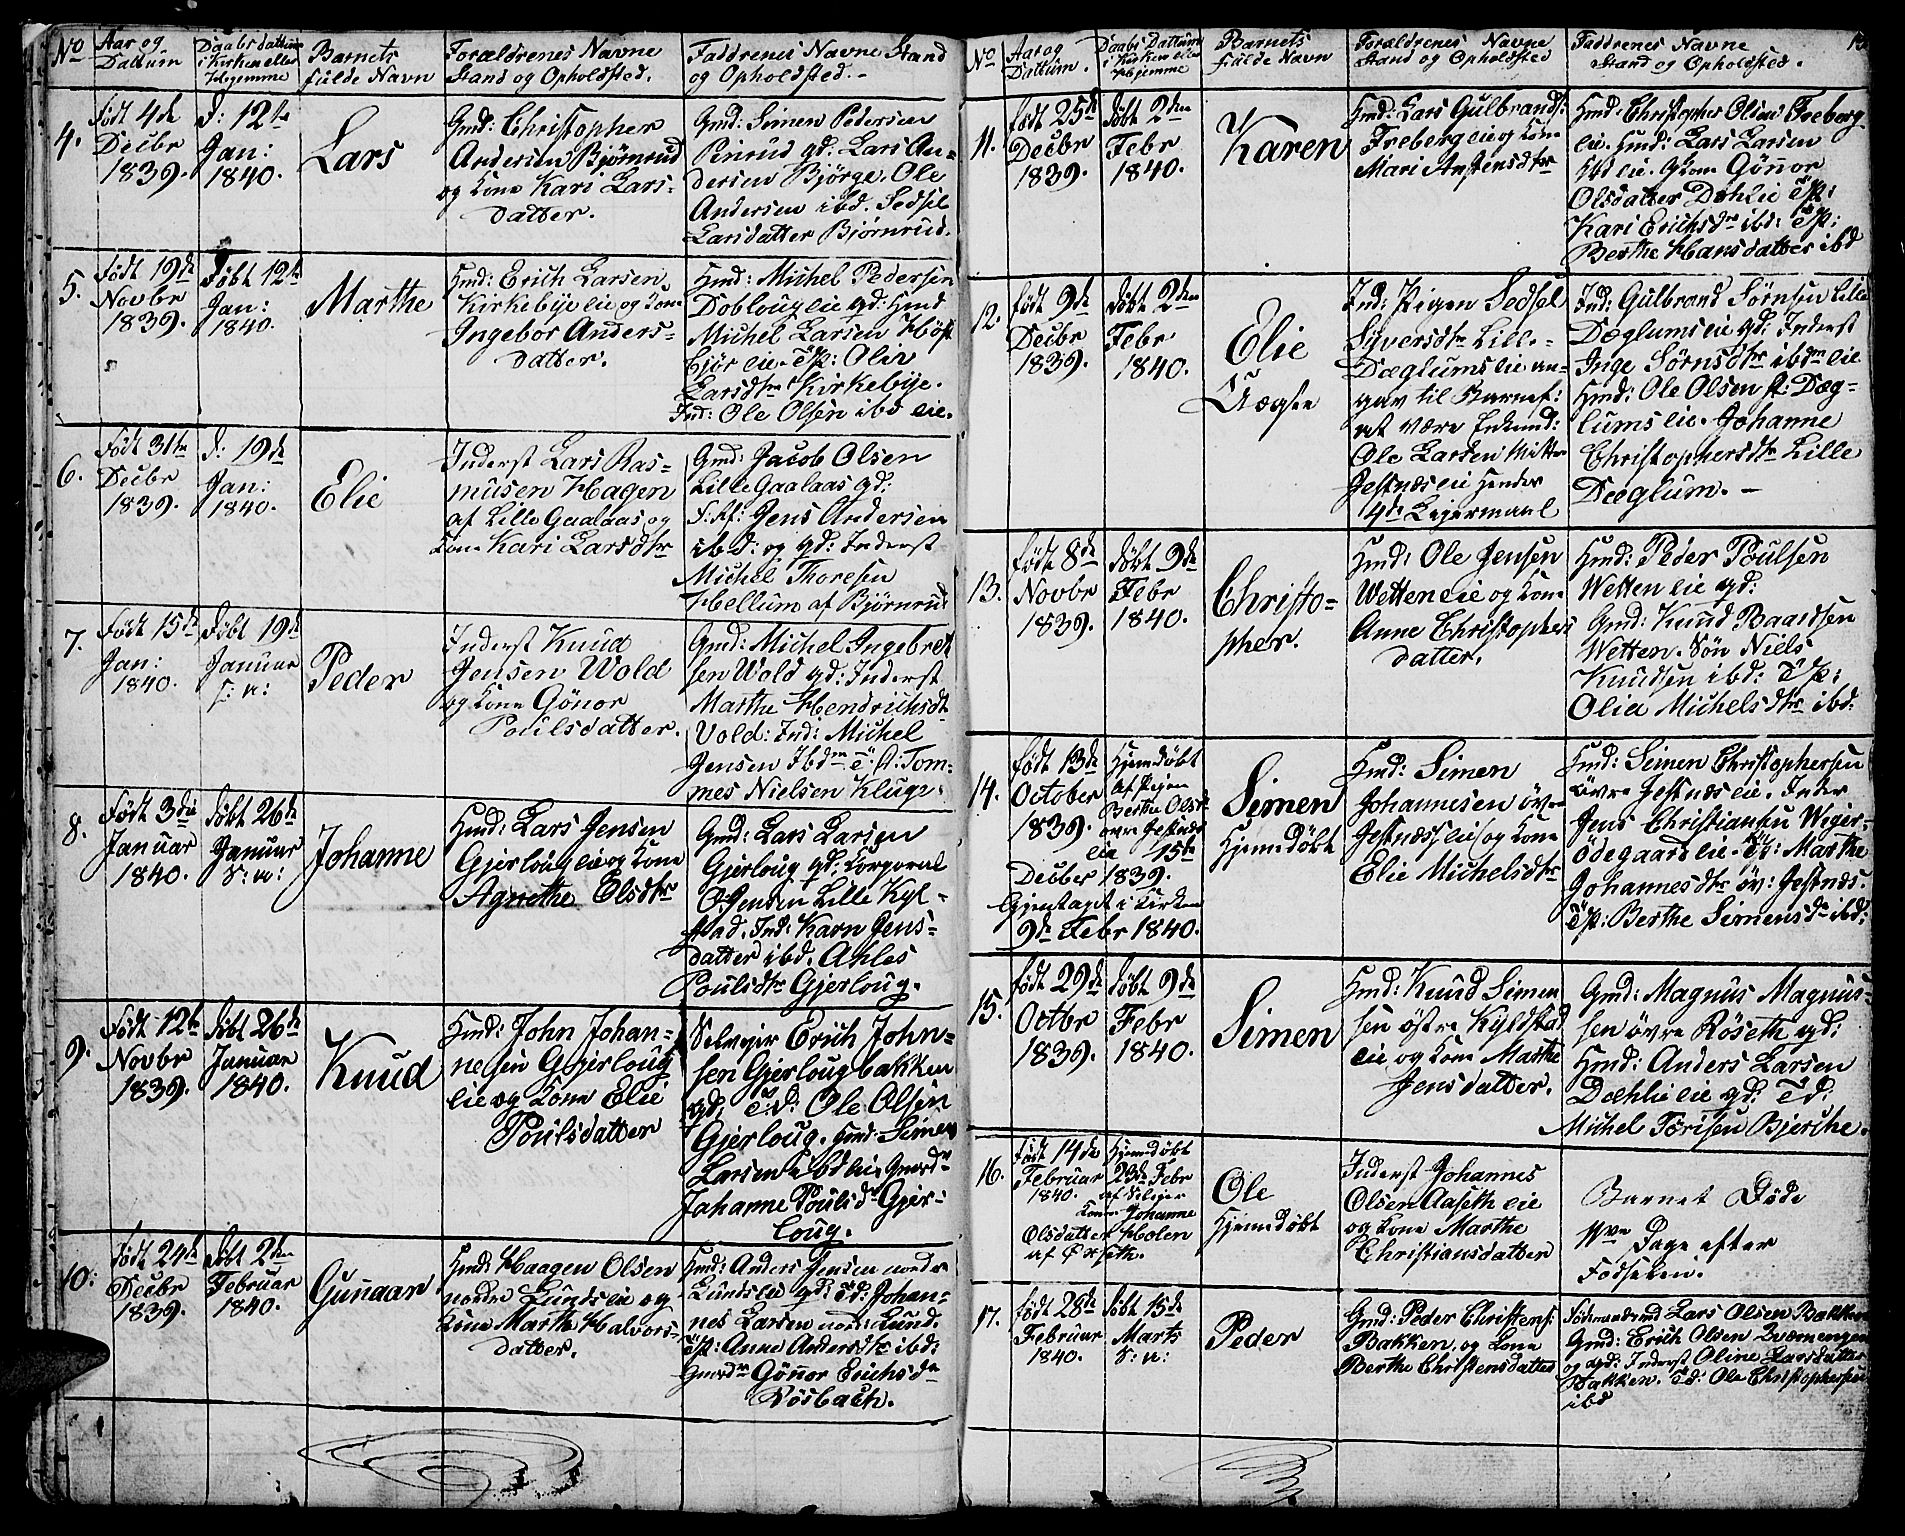 No
Aar og
Dattum
Daabs dattum
i Kirken eller
Hjemme
Barnets
fulde Navn
Forældrenes Navne
Stand og Opholdsted.
Faddrenes Navne Stand
og Opholdsted.-
4.
født 4de
Decbr
1839.
d: 12te
Jan:
1840.
Lars
Gmd: Christopher
Andersen Bjørnrud
og Kone Kari Lars-
datter.
Gmd: Simen Pedersen
Pinrud gd: Lars An-
dersen Bjørge. Ole
Andersen ibd. Sedsel
Larsdatter Bjørnrud.
5.
Født 19de
Novbr
1839.
døbt 12te
Jan:
1840.
Marthe
Hmd: Erich Larsen
Kirkebye eie og Kone
Ingebor Anders-
datter.
Hmd: Michel Pedersen
Doblougeie gd: Hmd
Michel Larsen Høst
bjør eie. TP: Olia
Larsdtr Kirkebye.
Ind: Ole Olsen ibd eie.
6.
Født 31te
Decbr
1839.
d: 19de
Jan:
1840.
Elie
Inderst Lars Ras-
musen Hagen
af Lille Gaalaas og
Kone Kari Larsdtr
Gmd: Jacob Olsen
Lille Gaalaas gd:
Jens Andersen
ibd: og gd: Inderst
Michel Thoresen
Hellum af Bjørnrud
7.
Født 15de
Jan:
1840.
Døbt 19de
Januar
S: n:
Peder
Inderst Knud
Jensen Wold
og Kone Gønor
Poulsdatter.
Gmd: Michel Ingebret
sen Wold gd: Inderst
Marthe Hendrichsdtr
Vold: Ind: Michel
Jensen Ibdm T: st: Tom-
mes Nielsen Kluge.
8.
Født 3die
Januar
1840.
døbt 26de
Januar
S: n:
Johanne
Hmd: Lars Jensen
Gjerlougeie og Kone
Agnethe Elsdtr
Gmd: Lars Larsen
Gjerloug gd: Korporal
O Jensen Lille Kyl-
stad. Ind: Karn Jens-
datter ibd. Ahles
Poulsdtr Gjerloug.
9.
Født 12te
Novbr
1839.
døbt 26de
Januar
1840.
Knud
Hmd: John Johan-
nesen Gjerloug
eie og Kone Elie
Poulsdatter
Selvejer Erich John-
sen Gjerlougbakken
gd. TD: Ole Olsen
Gjerloug. Hmd: Simen
Larsen ibd eie Gmdr
Johanne Poulsdr Gjer-
loug.
10.
født 24de
Decbr
1839.
døbt 2den
Februar
1840.
Gunaar
Hmd: Haagen Olsen
nordre Lunds eie og
Kone Marthe Halvors-
datter.
Hmd: Anders Jensen nordre
Lundseie gd: TD: Johan-
nes Larsen nord: Lund.
Anne Andersdtr ibd:
Gønor Erichsdr
Røsbach.
No
Aar og
Dattum.
Daabs Dattum
i Kirken eller
Hjemme
Barnets
fulde Navn
Forældrenes Navne
Stand og Opholdsted
Faddrenes Navne
Stand og Opholdsted.
11.
født 25de
Decbr
1839.
døbt 2den
Febr
1840.
Karen
Hmd: Lars Gulbrands:
Freberg eie og Kone
Mari Anstensdtr
Hmd: Christopher Olsen Freberg
eie. Hmd: Lars Larsen
Ibd eie. Kone Gønor
Olsdatter Dehlie TP:
Kari Erichsdr ibd: TP:
Berthe Hansdatter ibd
12.
født 9de
Decbr
1839.
døbt 2den
Febr
1840.
Elie
Uægte
Ind: Pigen Sedsel
Syversdtr Lille-
Dæglums eie an-
gav til Barnef:
at være Enkemd:
Ole Larsen
Jessnæs eie Hendes
4de Lejermaal
Ind: Gulbrand Sørnsen Lille
Dæglums eie gd: Inderst
Inge Sørnsdtr ibdm eie
Hmd: Ole Olsen st: Dæg-
lums eie. Johanne
Christophersdtr Lille
Dæglum. -
13.
født 8de
Novbr
1839.
døbt 9de
Febr
1840.
Christo-
pher.
Hmd: Ole Jensen
Wetten eie og Kone
Anne Christophers
datter.
Hmd: Peder Poulsen
Wetten eie gd:
Gmd: Knud Baardsen
Wetten. Søn Niels
Knudsen ibd: TP:
Olia Michelsdtr ibd:
14.
født 13de
October
1839.
Hjemdøbt
af Pigen
Berthe Olsdr
øvre Jessnæs
eie 15de
Decber 1839.
Gjentaget i Kirken
9de Febr 1840.
Simen
Hjemdøbt
Hmd: Simen
Johannesen øvre
Jessnæs eie og Kone
Elie Michelsdtr
Hmd: Simen Christophersen
øvre Jessnæs eie. Inder
Jens Christiansen Wiger-
ødegaard eie. TP: Marthe
Johannesdtr øv: Jessnæs.
TP: Berthe Simensdr ibd:
15.
født 29de
Octbr
1839.
døbt 9de
Febr
1840.
Simen
Hmd: Knud Simen
sen østre Kyldstad
eie og Kone Marthe
Jensdatter.
Gmd: Magnus Magnus-
sen øvre Røseth gd:
Hmd: Anders Larsen
Dæhlie eie gd: TD:
Michel Torisen Bjerche.
16.
født 14de
Februar
1840.
Hjemdøbt
23de Febr
af Selvejer
Kone Johanne
Olsdatter Holen
Ole
Hjemdøbt
Inderst Johannes
Olsen Aaseth eie
og Kone Marthe
Christiansdatter
Barnet Døde
Dage efter
Fødselen.
17.
født 28de
Februar
1840.
døbt 15de
Marts
S: n:
Peder
Gmd: Peder Christens:
Bakken, og Kone
Berthe Christensdatter
Lars Olsen Bakken
Gmd: Erich Olsen
og gd: Inderst Oline Larsdatter
Bakken. TD: Ole Christophersen
ibd